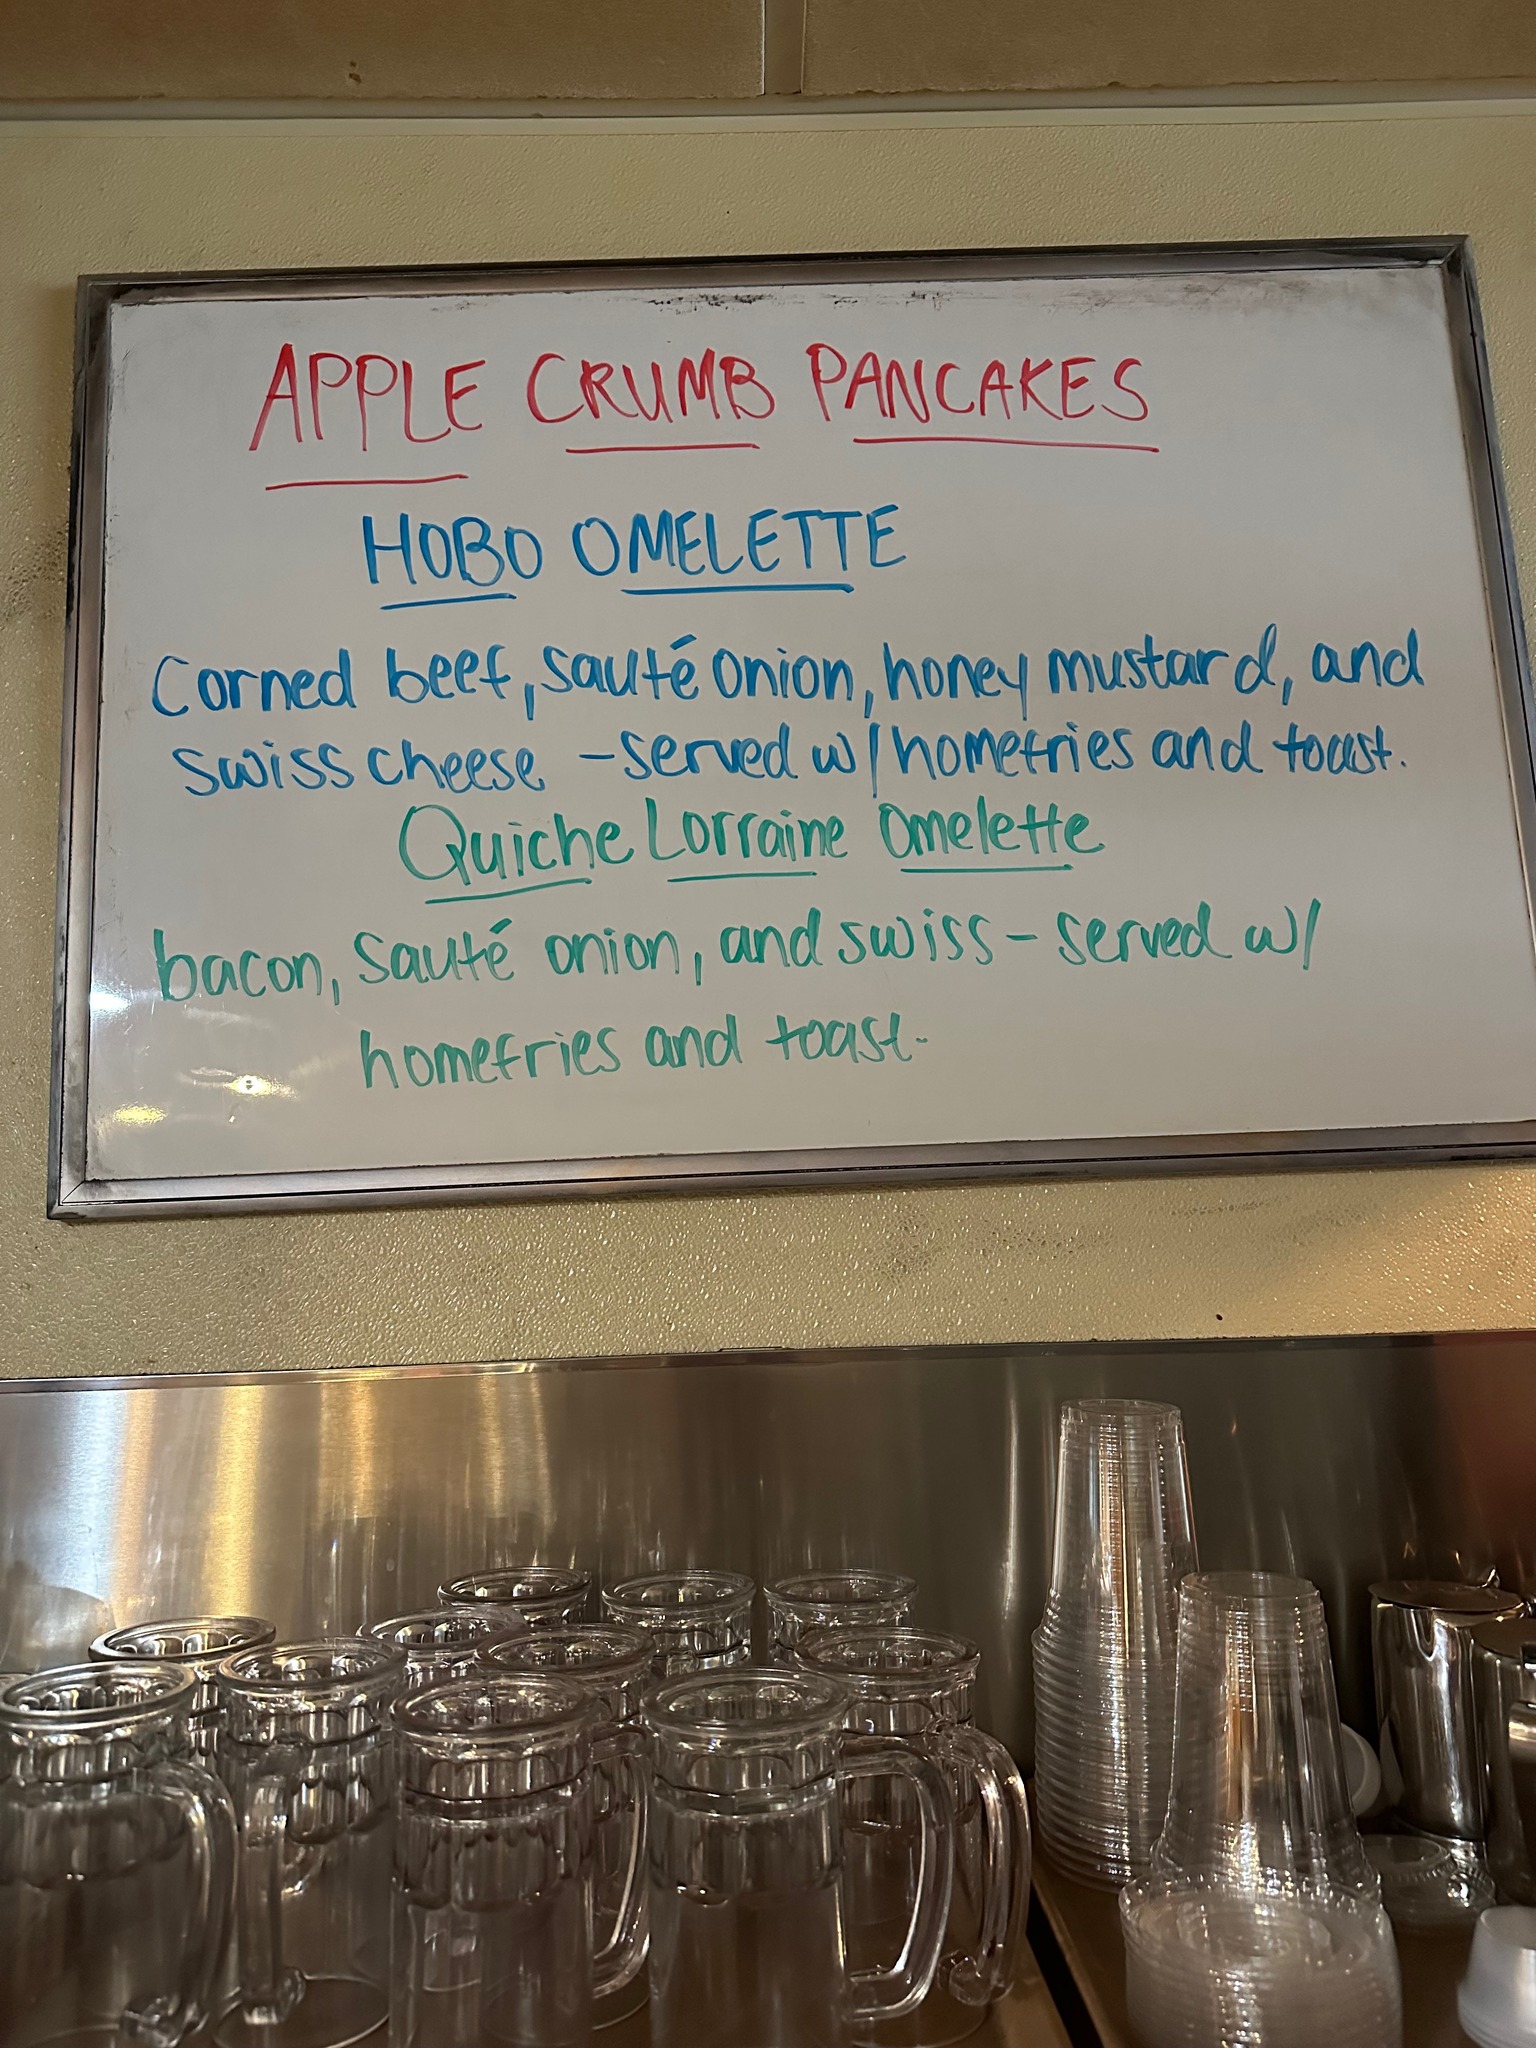 APPLE CRUMB PANCAKES
HOBO OMELETTE
Corned beef, sauté onion, honey mustard, and
swiss cheese - served w/ homefries and toast.
Quiche Lorraine Omelette
bacon, sauté onion, and swiss - served w/
homefries and toast.